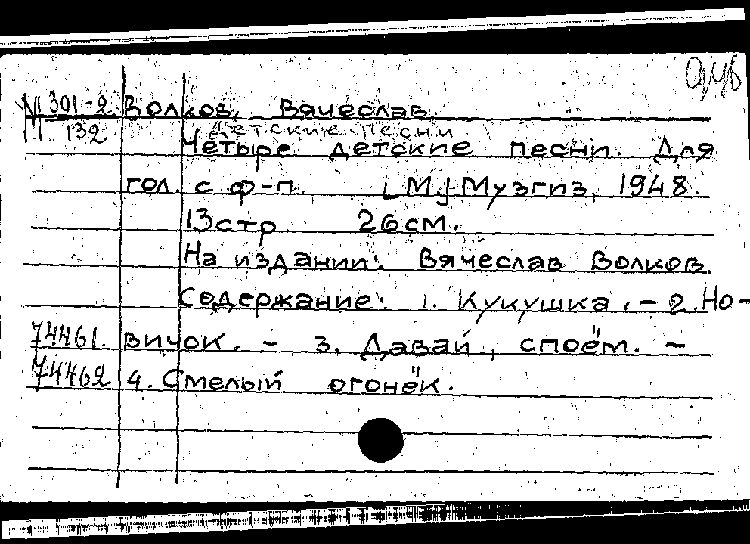 М 301-2 Волков, Вячеслав
М 132 Детские песни
Четыре детские песни. Для
гол. с ф-п. [М.] Музгиз, 1948.
13 стр 26 см.
На издании: Вячеслав Волков.
Содержание: 1. Кукушка. - 2. Но-
74461. вичок. - 3. Давай, споём. -
74462 4. Смелый огонёк.